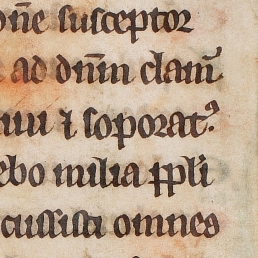 oñe susceptor
ad dñm clam̃
uui ⁊ soporatꝰ
ebo milia ppli
cussisti omnes